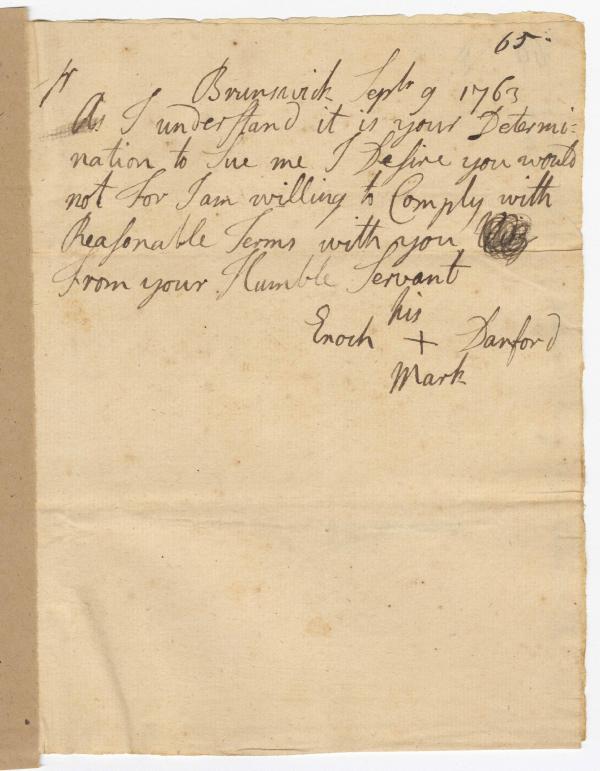 65.
Sr Brunswick Septr 9 1763
As I understand it is your Determi=
nation to Sue me I Desire you would
not For I am willing to Comply with
Reasonable Terms with you
From your Humble Servant
his
Enoch + Danford
Mark